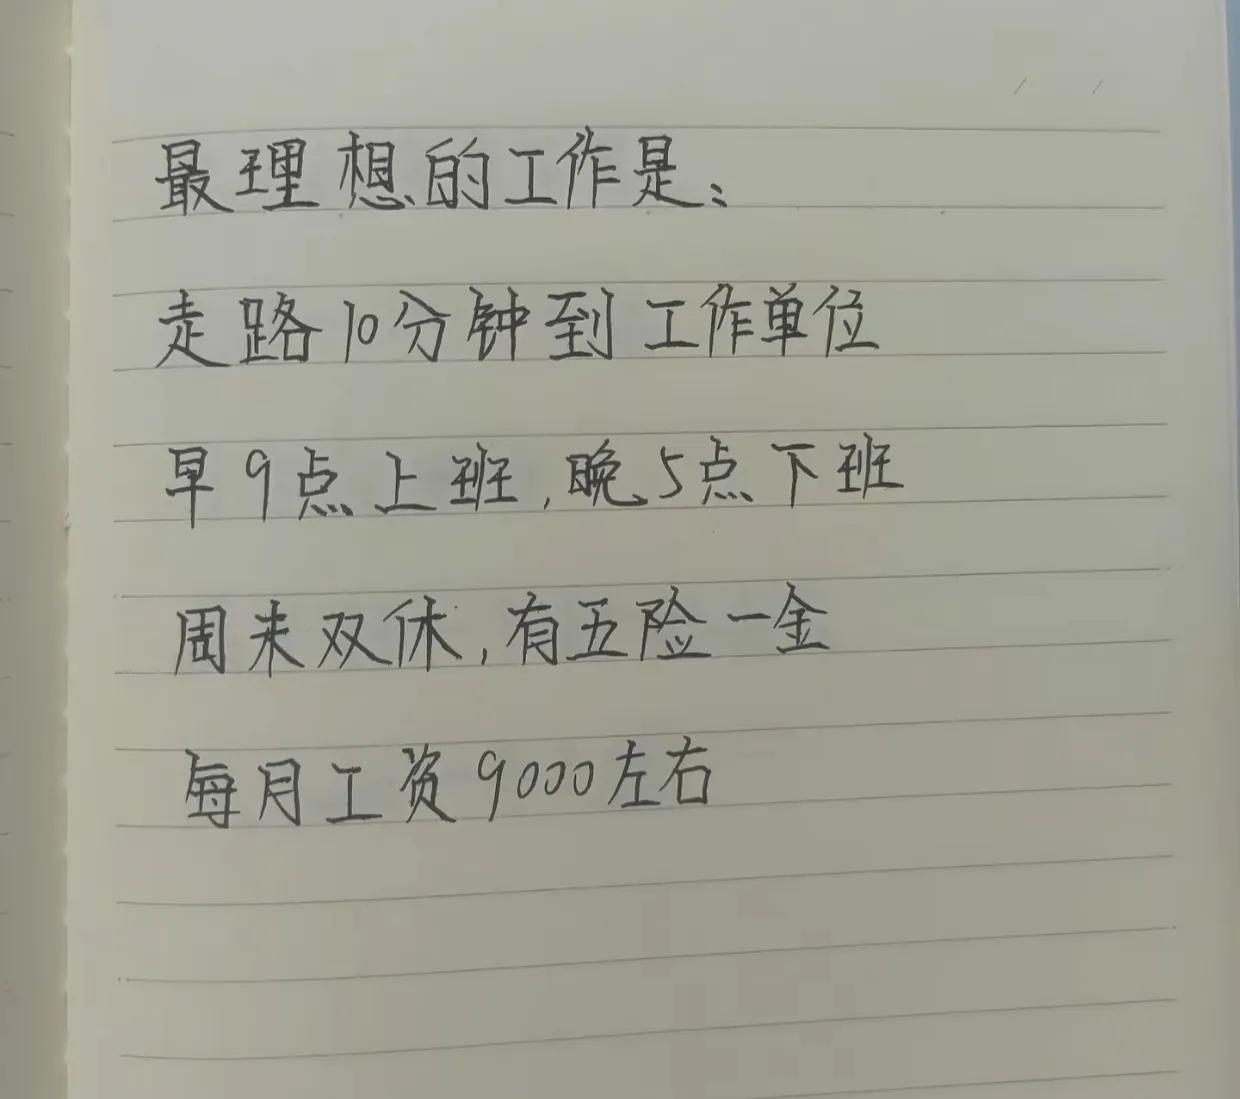 最理想的工作是:
走路10分钟到工作单位
早9点上班,晚5点下班
周末双休,有五险一金
每月工资9000左右